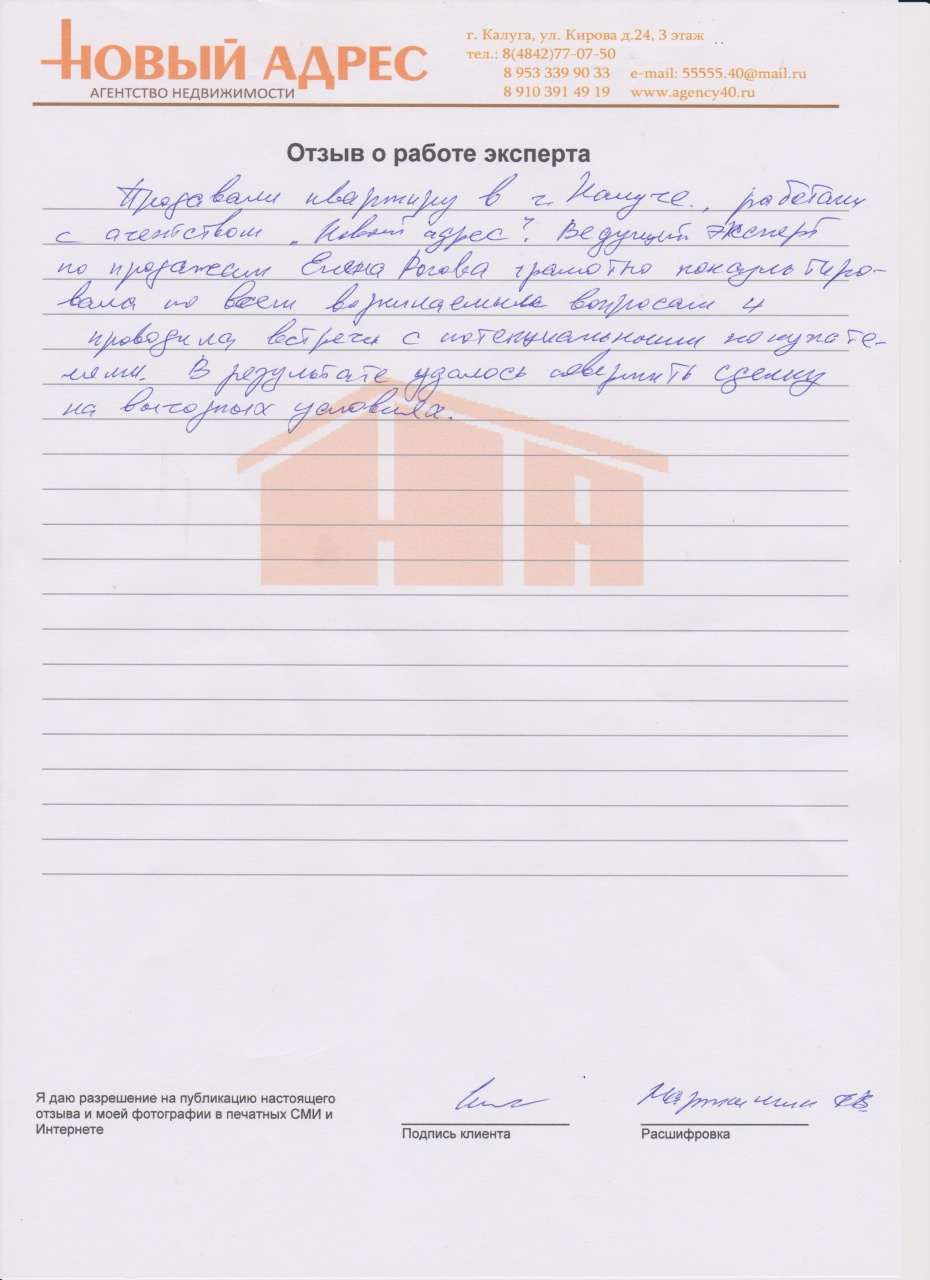 НОВЫЙ АДРЕС
АГЕНТСТВО НЕДВИЖИМОСТИ
г. Калуга, ул. Кирова д.24, 3 этаж
тел.: 8(4842)77-07-50
8 953 339 90 33 e-mail: 55555.40@mail.ru
8 910 391 49 19 www.agency40.ru
Отзыв о работе эксперта
Продавали квартиру в г. Калуге., работали
с агентством „Новый адрес". Ведущий эксперт
по продажам Елена Рогова грамотно консультиро-
вала по всем возникаемым вопросам и
проводила встречи с потенциальными покупате-
лями. В результате удалось совершить сделку
на выгодных условиях.
НА
Я даю разрешение на публикацию настоящего
отзыва и моей фотографии в печатных СМИ и
Интернете
Подпись клиента
Расшифровка